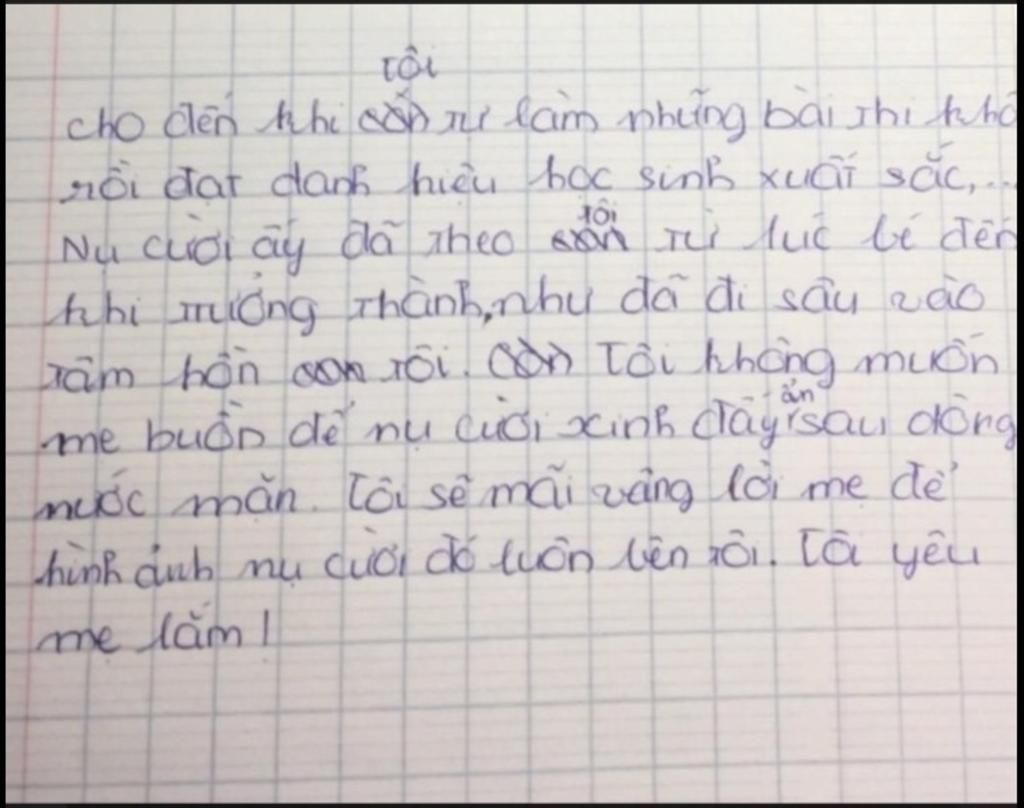 tôi
cho đến khi con tự làm những bài thi khó
rồi đạt danh hiệu học sinh xuất sắc,...
tôi
Nụ cười ấy đã theo con từ lúc bé đến
khi trưởng thành, như đã đi sâu vào
tâm hồn con tôi. Con Tôi không muốn
ẩn
mẹ buồn để nụ cười xinh đấy sau dòng
nước mặn. Tôi sẽ mãi vâng lời mẹ để
hình ảnh nụ cười đó luôn bên tôi. Tôi yêu
mẹ lắm!